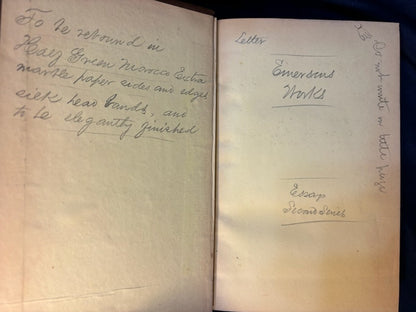 To be rebound in
Half Green Morocco Extra
marble paper sides and edges
silk head bands, and
to be elegantly finished
Letter
Emersons
Works
Essay
Second Series
Do not write on title page